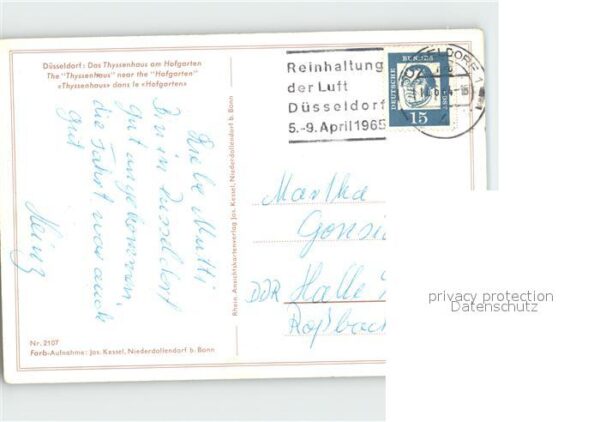 Düsseldorf: Das Thyssenhaus am Hofgarten
The "Thyssenhaus" near the "Hofgarten"
«Thyssenhaus» dans le «Hofgarten»
Liebe Mutti
Bin in Düsseldorf
gut angekommen,
die Fahrt war auch
gut
Heinz
Nr. 2107
Farb-Aufnahme: Jos. Kessel, Niederdollendorf b. Bonn
Rhein. Ansichtskartenverlag Jos. Kessel, Niederdollendorf b. Bonn
Reinhaltung
der Luft
Düsseldorf
5.-9. April 1965
DEUTSCHE BUNDES
15
ELDORF 1
Martha
Gonsi
DDR Halle
Roßbac
privacy protection
Datenschutz